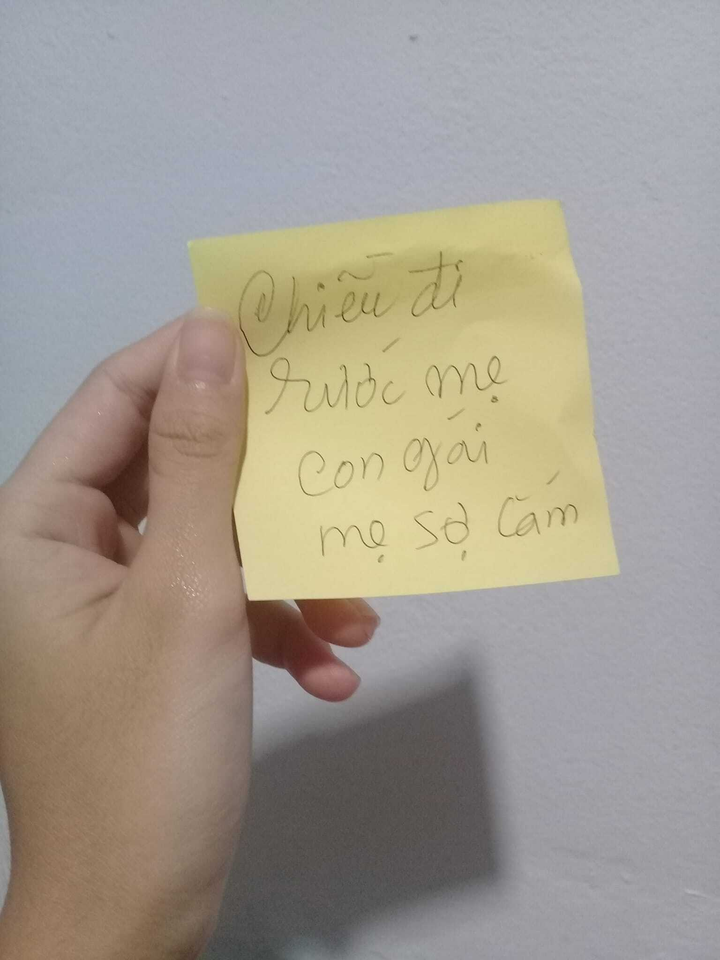 Chiều đi
rước mẹ
con gái
mẹ sợ lắm